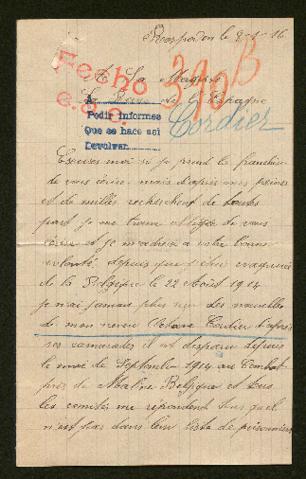 le 2-1-16
Fecho
e.o.c.
A La Majesté
Le Reine de l'Espagne
Pedir informes
Que se hace asi
Devolver.
310 B
Cordier
Excusez moi si je prend la franchise
de vous écrire, mais d'après mes peines
et de milles recherchent de toutes
part je me trouve obligée de vous
écrire et je m'adresse à votre bonne
volonté, depuis que j'étais évaquée
de la Belgique le 22 Août 1914
je n'ai jamais plus eu des nouvelles
de mon neveu Octave Cordier d'après
ses camarades il est disparu depuis
le mois de Septembre 1914 au Combat
près de Maline Belgique et tous
les comités me répondent tous quel
n'est pas dans leur liste de prisonniers